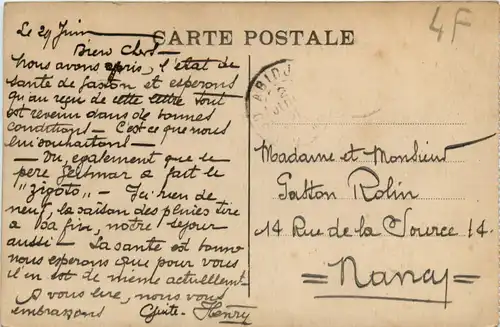 Le 29 Juin
CARTE POSTALE
4F
Bien Chers —
Nous avons appris, l'état de
santé de Gaston et espérons
qu'au reçu de cette lettre tout
est revenu dans de bonnes
conditions — C'est ce que nous
lui souhaitons —
— Vu, également que le
père a fait le
"zigoto" — Ici rien de
neuf, la saison des pluies tire
à sa fin, notre séjour
aussi — La santé est bonne
nous espérons que pour vous
il en est de même actuellement
A vous lire, nous vous
embrassons Henry
ABIDJ
Madame et Monsieur
Gaston Rolin
14 Rue de la Source 14.
= Nancy =